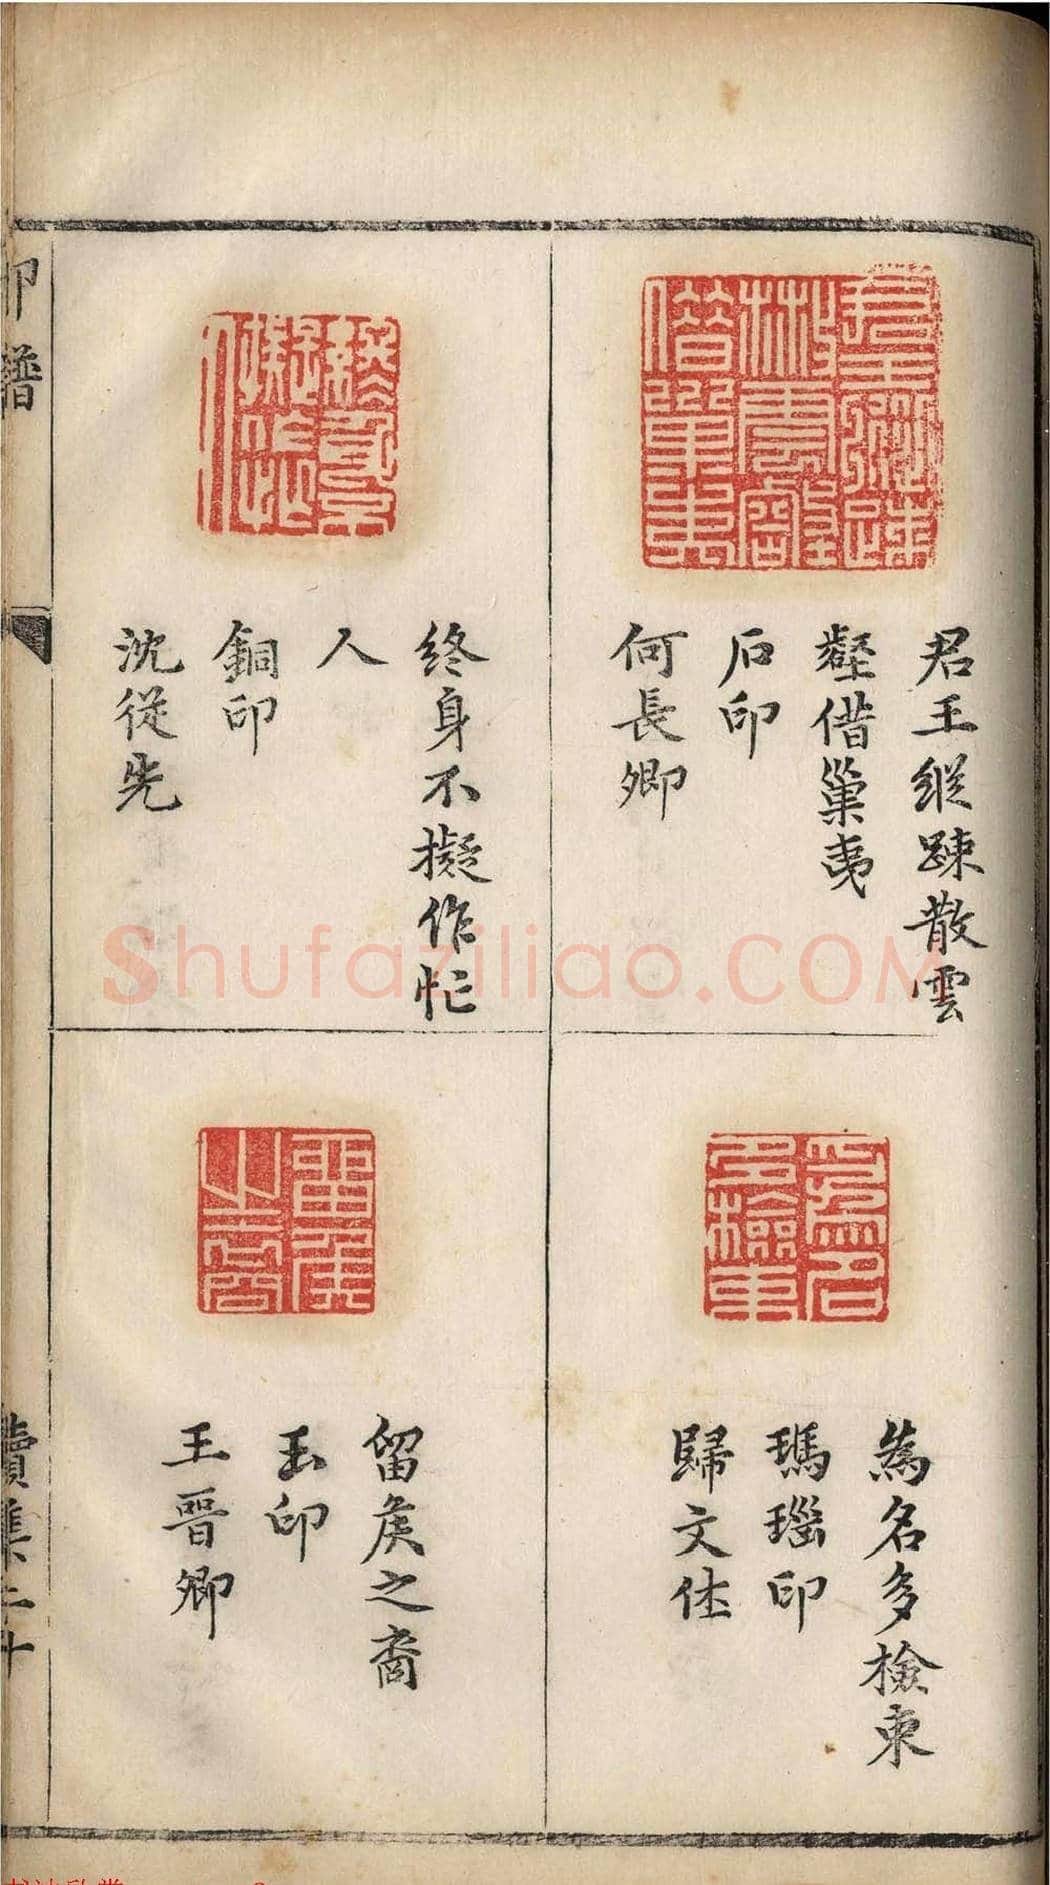 君王縱踈散雲
壑借巢夷
石印
何長卿
為名多檢束
瑪瑙印
歸文休
終身不擬作忙
人
銅印
沈從先
留侯之裔
玉印
王晉卿
印譜
續集二十
Shufaziliao.COM